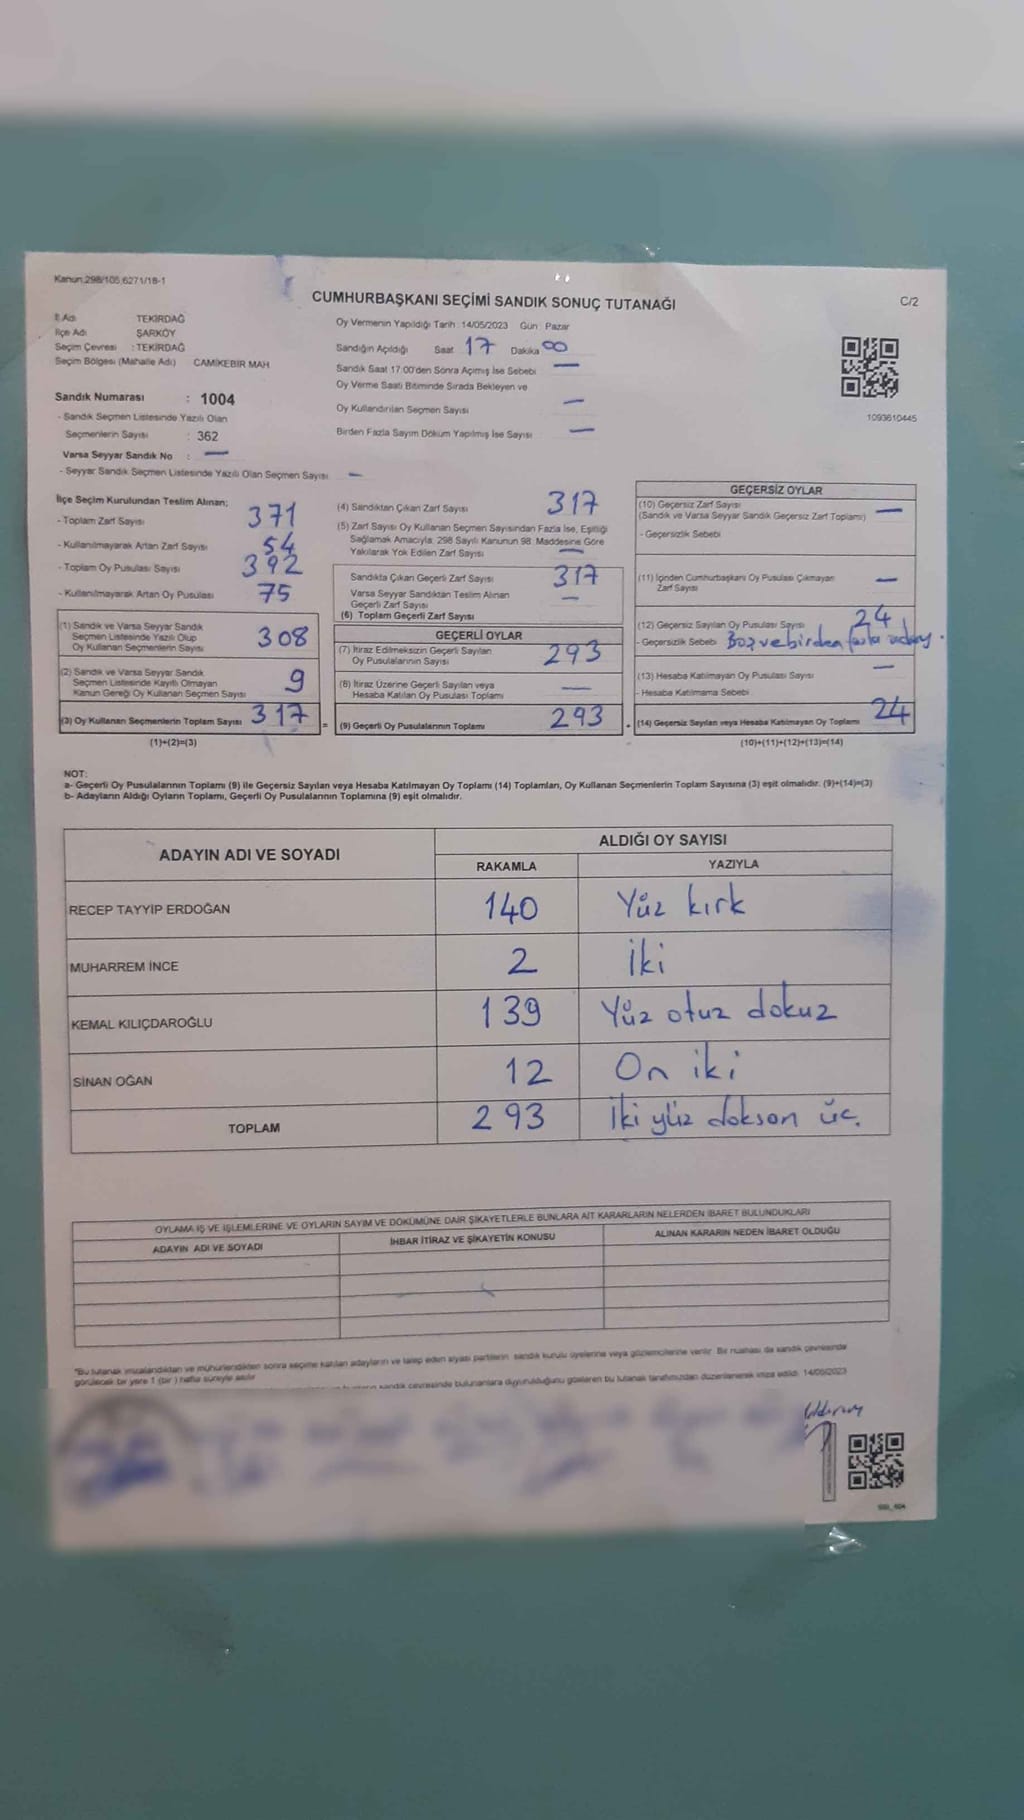 Kanun:298/105,6271/18-1
CUMHURBAŞKANI SEÇİMİ SANDIK SONUÇ TUTANAĞI
C/2
İl Adı TEKİRDAĞ
İlçe Adı ŞARKÖY
Seçim Çevresi : TEKİRDAĞ
Seçim Bölgesi (Mahalle Adı) CAMİKEBİR MAH
Sandık Numarası : 1004
- Sandık Seçmen Listesinde Yazılı Olan
Seçmenlerin Sayısı : 362
Varsa Seyyar Sandık No : —
- Seyyar Sandık Seçmen Listesinde Yazılı Olan Seçmen Sayısı —
Oy Vermenin Yapıldığı Tarih : 14/05/2023 Gün : Pazar
Sandığın Açıldığı Saat 17 Dakika 00
Sandık Saat 17:00'den Sonra Açımış İse Sebebi —
Oy Verme Saati Bitiminde Sırada Bekleyen ve
Oy Kullandırılan Seçmen Sayısı —
Birden Fazla Sayım Döküm Yapılmış İse Sayısı —
1093610445
İlçe Seçim Kurulundan Teslim Alınan;
- Toplam Zarf Sayısı 371
- Kullanılmayarak Artan Zarf Sayısı 54
- Toplam Oy Pusulası Sayısı 392
- Kullanılmayarak Artan Oy Pusulası 75
(1) Sandık ve Varsa Seyyar Sandık
Seçmen Listesinde Yazılı Olup
Oy Kullanan Seçmenlerin Sayısı 308
(2) Sandık ve Varsa Seyyar Sandık
Seçmen Listesinde Kayıtlı Olmayan
Kanun Gereği Oy Kullanan Seçmen Sayısı 9
(3) Oy Kullanan Seçmenlerin Toplam Sayısı 317
(1)+(2)=(3)
(4) Sandıktan Çıkan Zarf Sayısı 317
(5) Zarf Sayısı Oy Kullanan Seçmen Sayısından Fazla İse, Eşitliği
Sağlamak Amacıyla; 298 Sayılı Kanunun 98. Maddesine Göre
Yakılarak Yok Edilen Zarf Sayısı —
Sandıkta Çıkan Geçerli Zarf Sayısı 317
Varsa Seyyar Sandıktan Teslim Alınan
Geçerli Zarf Sayısı —
(6) Toplam Geçerli Zarf Sayısı
GEÇERLİ OYLAR
(7) İtiraz Edilmeksizin Geçerli Sayılan
Oy Pusulalarının Sayısı 293
(8) İtiraz Üzerine Geçerli Sayılan veya
Hesaba Katılan Oy Pusulası Toplamı —
= (9) Geçerli Oy Pusulalarının Toplamı 293
GEÇERSİZ OYLAR
(10) Geçersiz Zarf Sayısı
(Sandık ve Varsa Seyyar Sandık Geçersiz Zarf Toplamı) —
- Geçersizlik Sebebi
(11) İçinden Cumhurbaşkanı Oy Pusulası Çıkmayan
Zarf Sayısı —
(12) Geçersiz Sayılan Oy Pusulası Sayısı 24
- Geçersizlik Sebebi Boş ve birden fazla aday.
(13) Hesaba Katılmayan Oy Pusulası Sayısı —
- Hesaba Katılmama Sebebi
(14) Geçersiz Sayılan veya Hesaba Katılmayan Oy Toplamı 24
(10)+(11)+(12)+(13)=(14)
NOT:
a- Geçerli Oy Pusulalarının Toplamı (9) ile Geçersiz Sayılan veya Hesaba Katılmayan Oy Toplamı (14) Toplamları, Oy Kullanan Seçmenlerin Toplam Sayısına (3) eşit olmalıdır. (9)+(14)=(3)
b- Adayların Aldığı Oyların Toplamı, Geçerli Oy Pusulalarının Toplamına (9) eşit olmalıdır.
ADAYIN ADI VE SOYADI
ALDIĞI OY SAYISI
RAKAMLA YAZIYLA
RECEP TAYYİP ERDOĞAN 140 Yüz kırk
MUHARREM İNCE 2 İki
KEMAL KILIÇDAROĞLU 139 Yüz otuz dokuz
SİNAN OĞAN 12 On iki
TOPLAM 293 İki yüz doksan üç.
OYLAMA İŞ VE İŞLEMLERİNE VE OYLARIN SAYIM VE DÖKÜMÜNE DAİR ŞİKAYETLERLE BUNLARA AİT KARARLARIN NELERDEN İBARET BULUNDUKLARI
ADAYIN ADI VE SOYADI İHBAR İTİRAZ VE ŞİKAYETİN KONUSU ALINAN KARARIN NEDEN İBARET OLDUĞU
*Bu tutanak imzalandıktan ve mühürlendikten sonra seçime katılan adayların ve talep eden siyasi partilerin sandık kurulu üyelerine veya gözlemcilerine verilir. Bir nüshası da sandık çevresinde
görülecek bir yere 1 (bir) hafta süreyle asılır
sandık çevresinde bulunanlara duyurulduğunu gösteren bu tutanak tarafımızdan düzenlenerek imza edildi. 14/05/2023